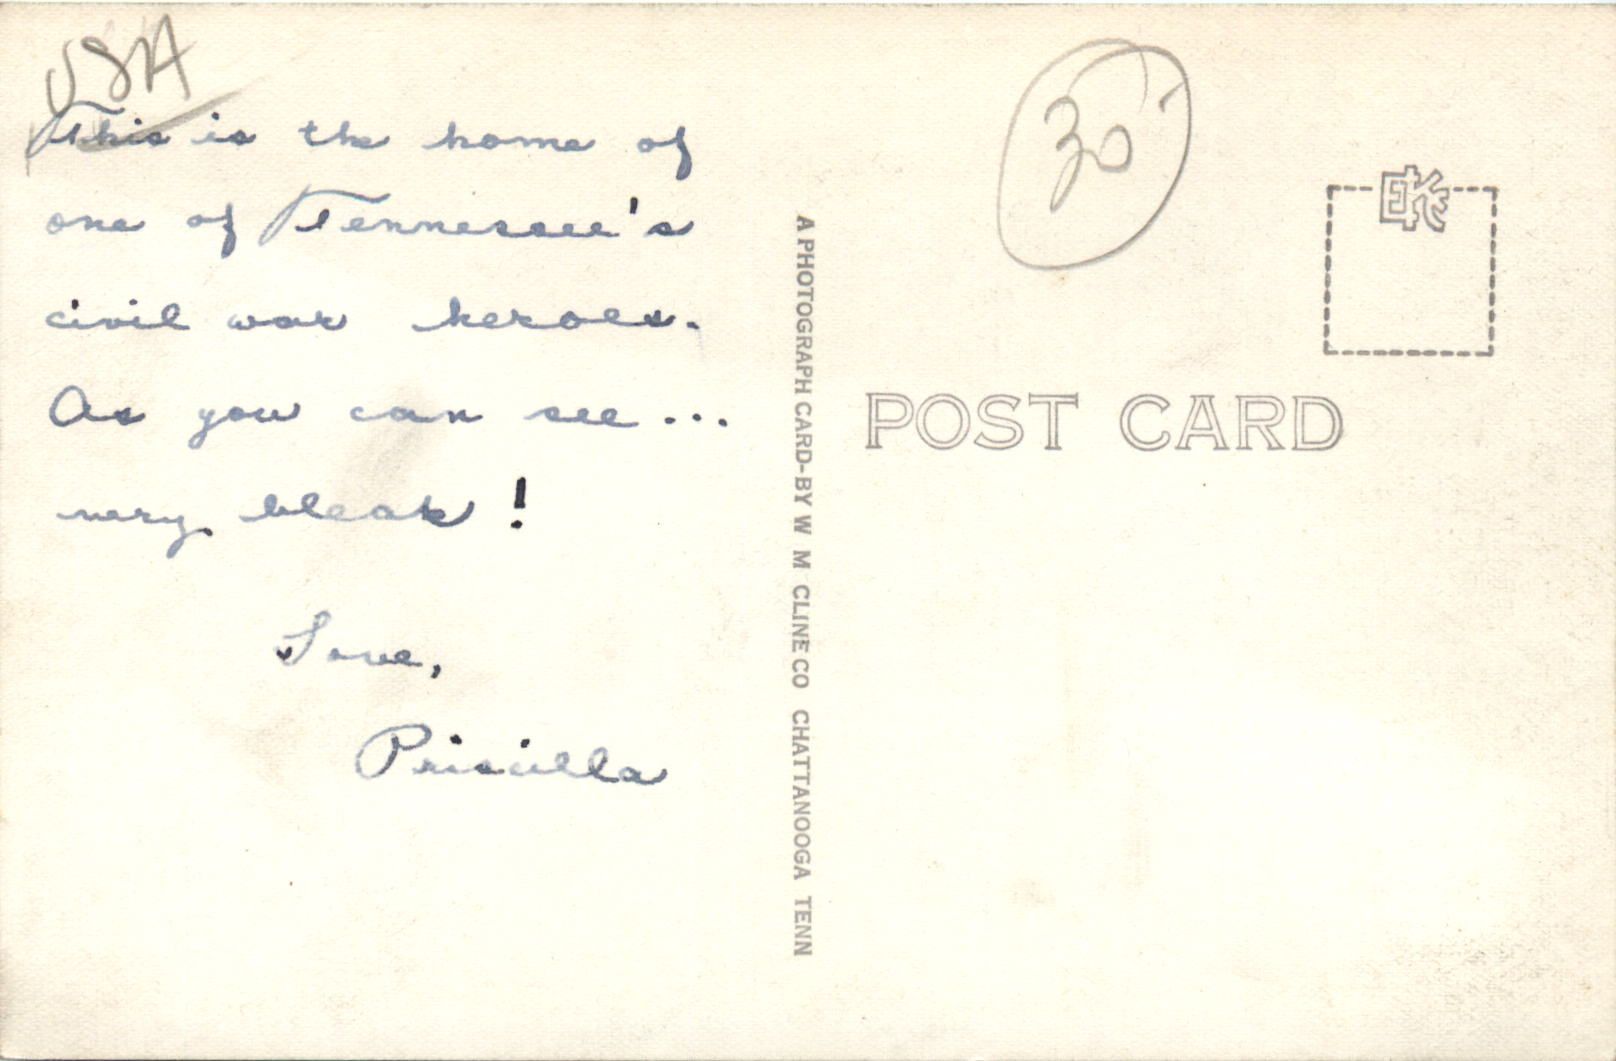 USA
This is the home of
one of Tennessee's
civil war heroes.
As you can see...
very bleak!
Love,
Priscilla
A PHOTOGRAPH CARD-BY W M CLINE CO CHATTANOOGA TENN
30
POST CARD